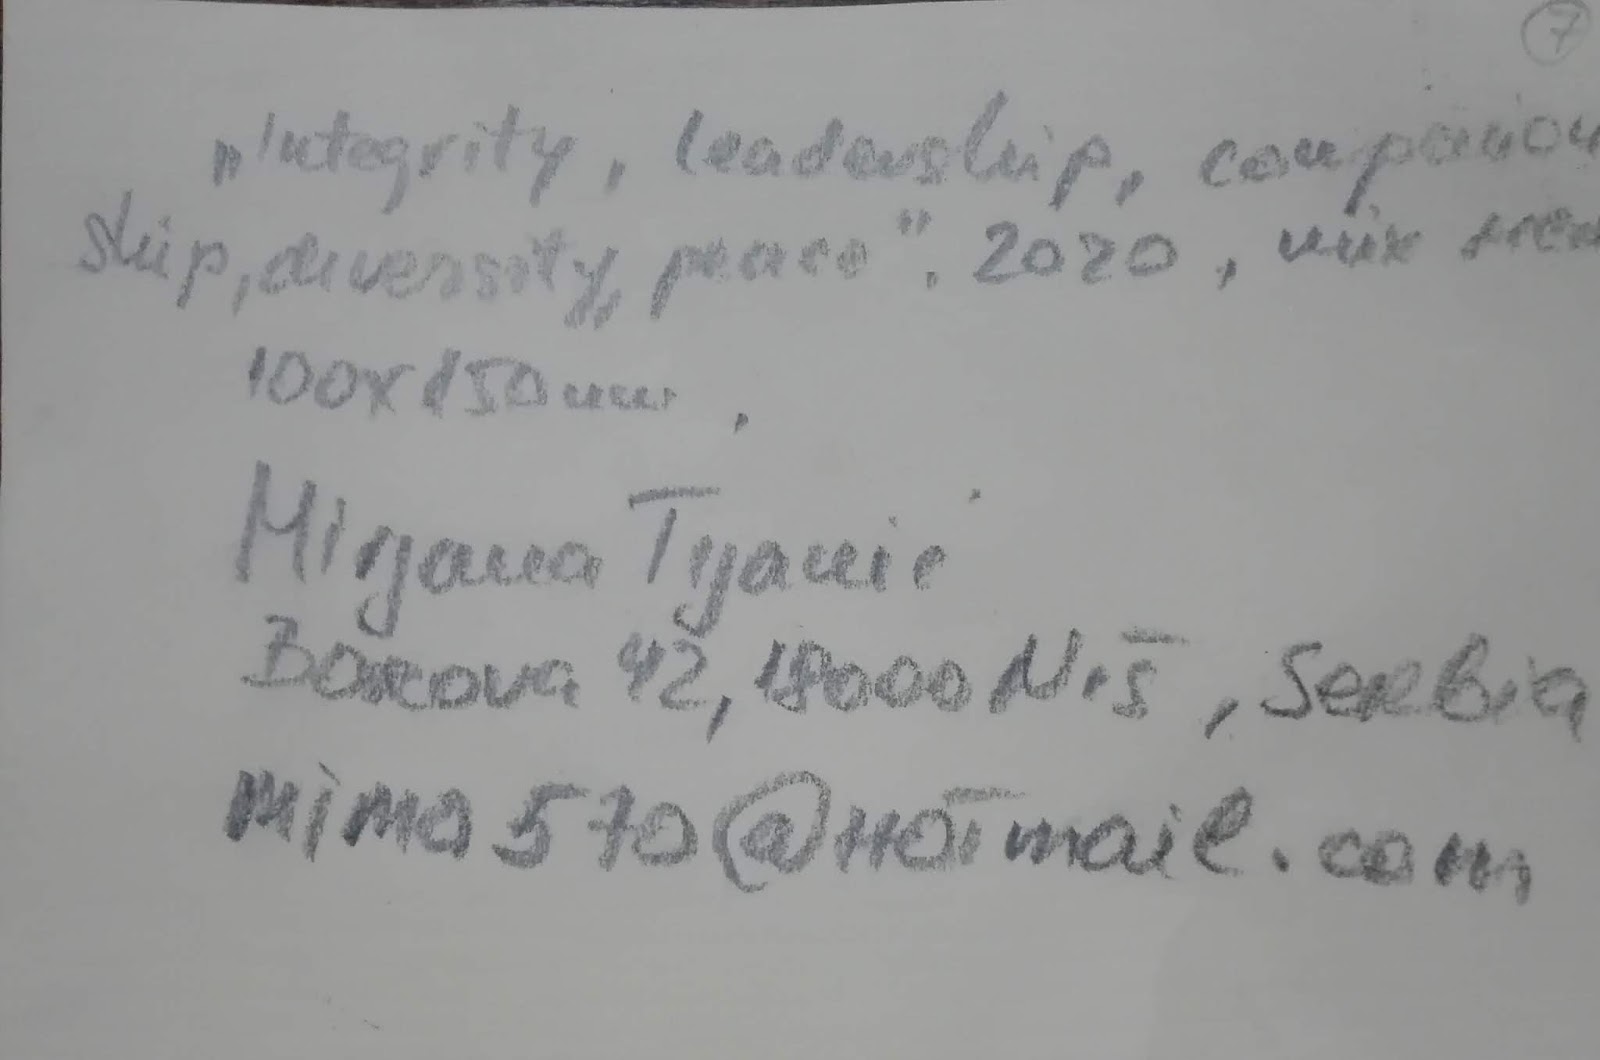 7
„Integrity, leadership, companion
ship, diversity, peace". 2020, mix med
100x150mm,
Mirjana Tijanic
42, 18000 Niš, Serbia
mimo570@hotmail.com